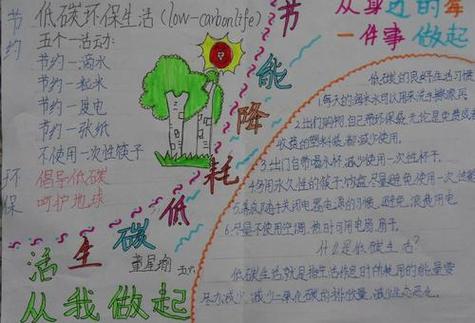 节约
环保
低碳环保生活(low-carbonlife)
五个一活动:
节约一滴水
节约一粒米
节约一度电
节约一张纸
不使用一次性筷子
倡导低碳
呵护地球
节能降耗低碳生活
从我做起
董星
从身边的每
一件事做起
低碳的良好生活习惯
1.每天的淘米水可以用来洗手擦家具
2.出门购物,自己带环保袋,无论是免费或者
收费的塑料袋,都减少使用。
3.出门自带喝水杯,减少使用一次性杯子。
4.多用永久性的筷子,饭盒,尽量避免使用一次性
5.养成随手关闭电器电源的习惯,避免浪费用电
6.尽量不使用空调,热时可用电扇扇子。
什么是低碳生活?
低碳生活就是指生活作息时所使用的能量要
尽力减少,减少二氧化碳的排放量,减少生态恶化。